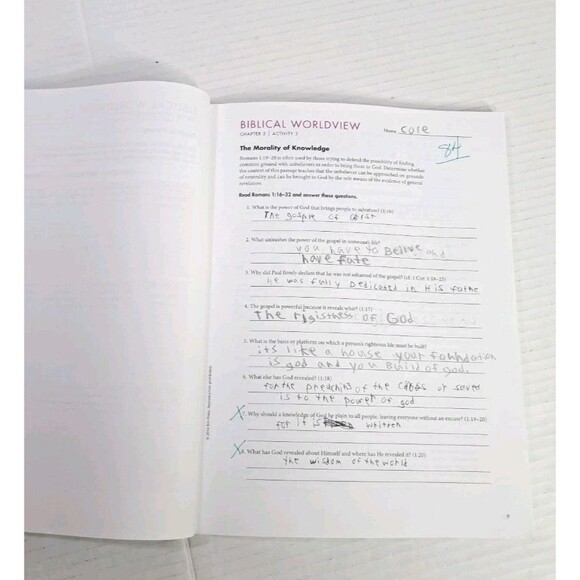 BIBLICAL WORLDVIEW
CHAPTER 2 | ACTIVITY 2
Name cole
84
The Morality of Knowledge
Romans 1:19–20 is often used by those trying to defend the possibility of finding
common ground with unbelievers in order to bring them to God. Determine whether
the context of this passage teaches that the unbeliever can be approached on grounds
of neutrality and can be brought to God by the sole means of the evidence of general
revelation.
Read Romans 1:16–32 and answer these questions.
1. What is the power of God that brings people to salvation? (1:16)
The gosple of christ
2. What unleashes the power of the gospel in someone's life?
you have to Belive and
have fate
3. Why did Paul firmly declare that he was not ashamed of the gospel? (cf. 1 Cor. 1:18–25)
he was fully Dedicated in His fathe
4. The gospel is powerful because it reveals what? (1:17)
The rigistness of God
5. What is the basis or platform on which a person's righteous life must be built?
its like a house your foundation
is god and you Build of god.
6. What else has God revealed? (1:18)
for the preaching of the or saved
is to the power of god
X 7. Why should a knowledge of God be plain to all people, leaving everyone without an excuse? (1:19–20)
for it is written
X 8. What has God revealed about Himself and where has He revealed it? (1:20)
the wisdom of the world